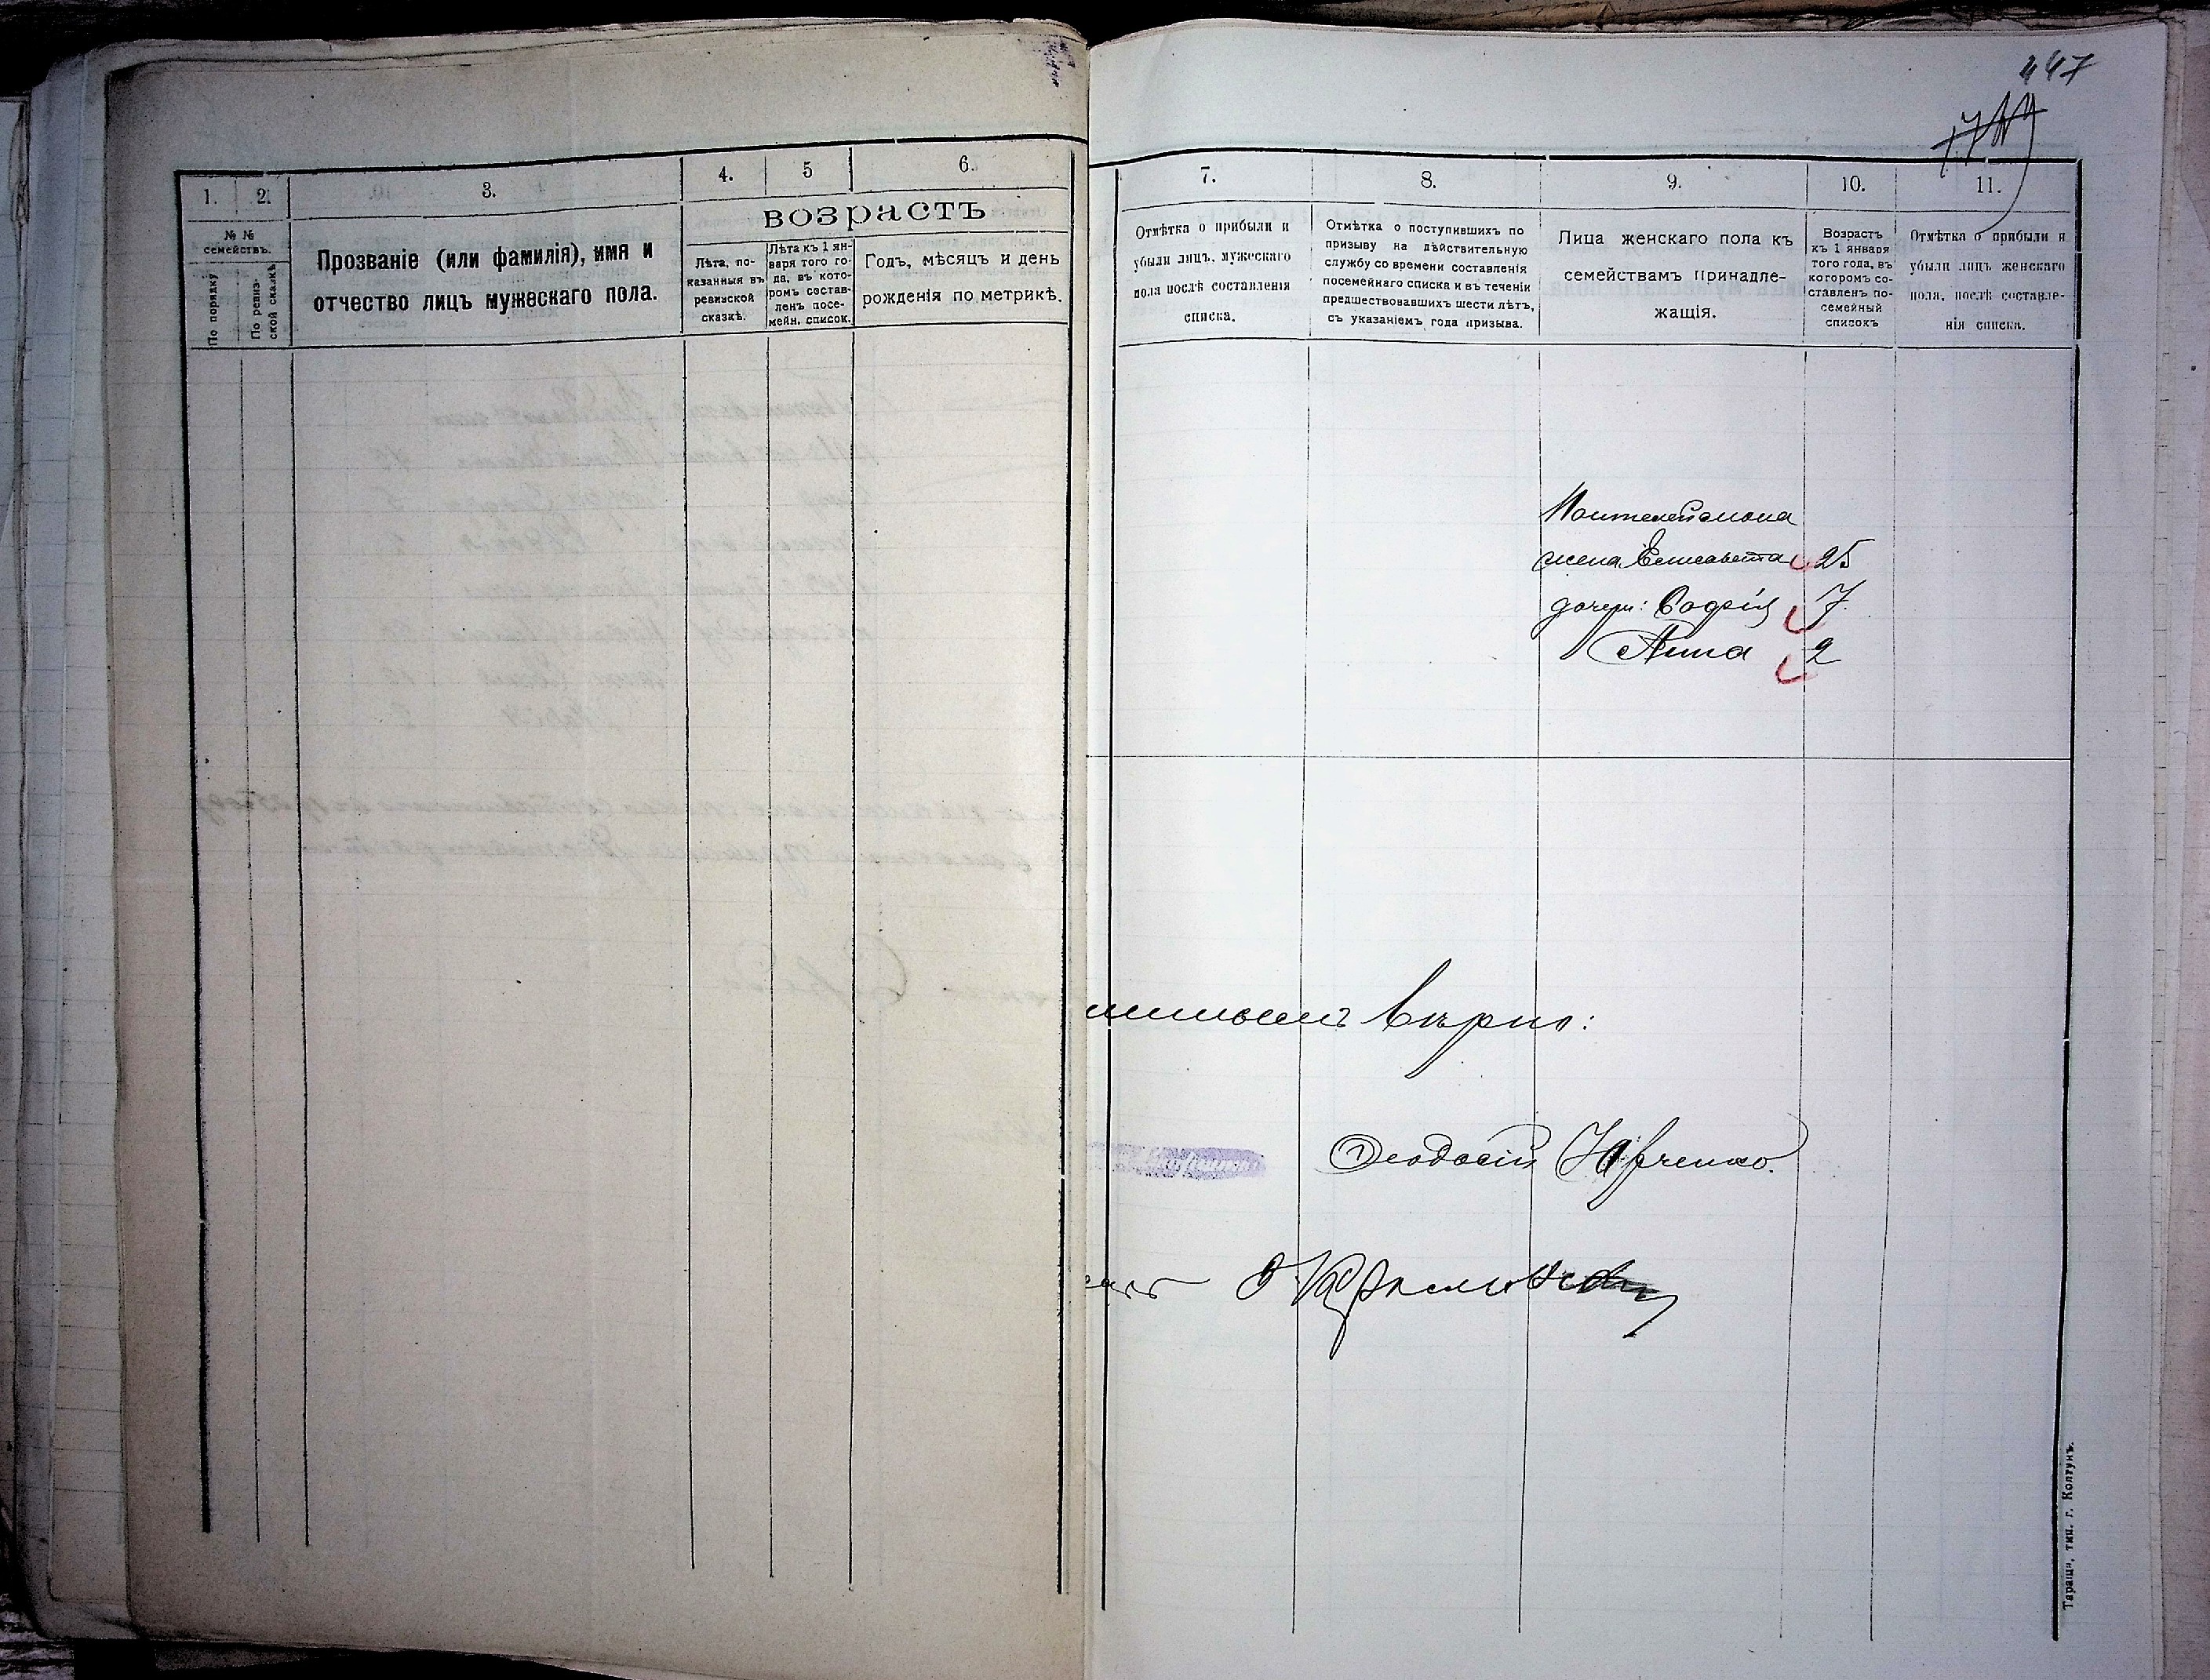 447
1. 2. 3. 4. 5 6.
№ №
семействъ.
По порядку
По ревиз-
ской сказкѣ
Прозваніе (или фамилія), имя и
отчество лицъ мужескаго пола.
возрастъ
Лѣта, по-
казанныя въ
ревизской
сказкѣ.
Лѣта къ 1 ян-
варя того го-
да, въ кото-
ромъ состав-
ленъ посе-
мейн. список.
Годъ, мѣсяцъ и день
рожденія по метрикѣ.
7. 8. 9. 10. 11.
Отмѣтка о прибыли и
убыли лицъ, мужескаго
пола послѣ составленія
списка.
Отмѣтка о поступившихъ по
призыву на дѣйствительную
службу со времени составленія
посемейнаго списка и въ теченіи
предшествовавшихъ шести лѣтъ,
съ указаніемъ года призыва.
Лица женскаго пола къ
семействамъ принадле-
жащія.
Возрастъ
къ 1 января
того года, въ
которомъ со-
ставленъ по-
семейный
списокъ
Отмѣтка о прибыли и
убыли лицъ женскаго
пола, послѣ составле-
нія списка.
Пантелеймона
жена Елисавета 25
дочери: Софія 7
Анна 2
вѣрно:
Феодосій Юрченко.
Таращ., тип. г. Колтунъ.